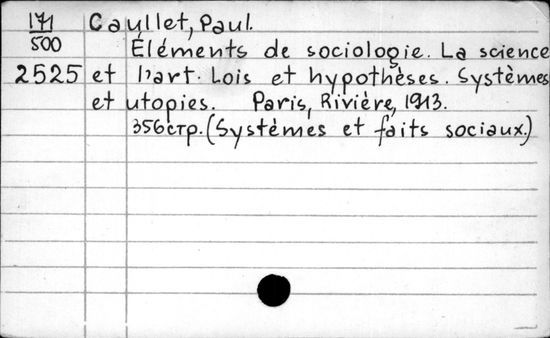 171 Caullet, Paul.
500 Éléments de sociologie. La science
2525 et l'art. Lois et hypothèses. Systèmes
et utopies. Paris, Rivière, 1913.
356стр. (Systèmes et faits sociaux.)